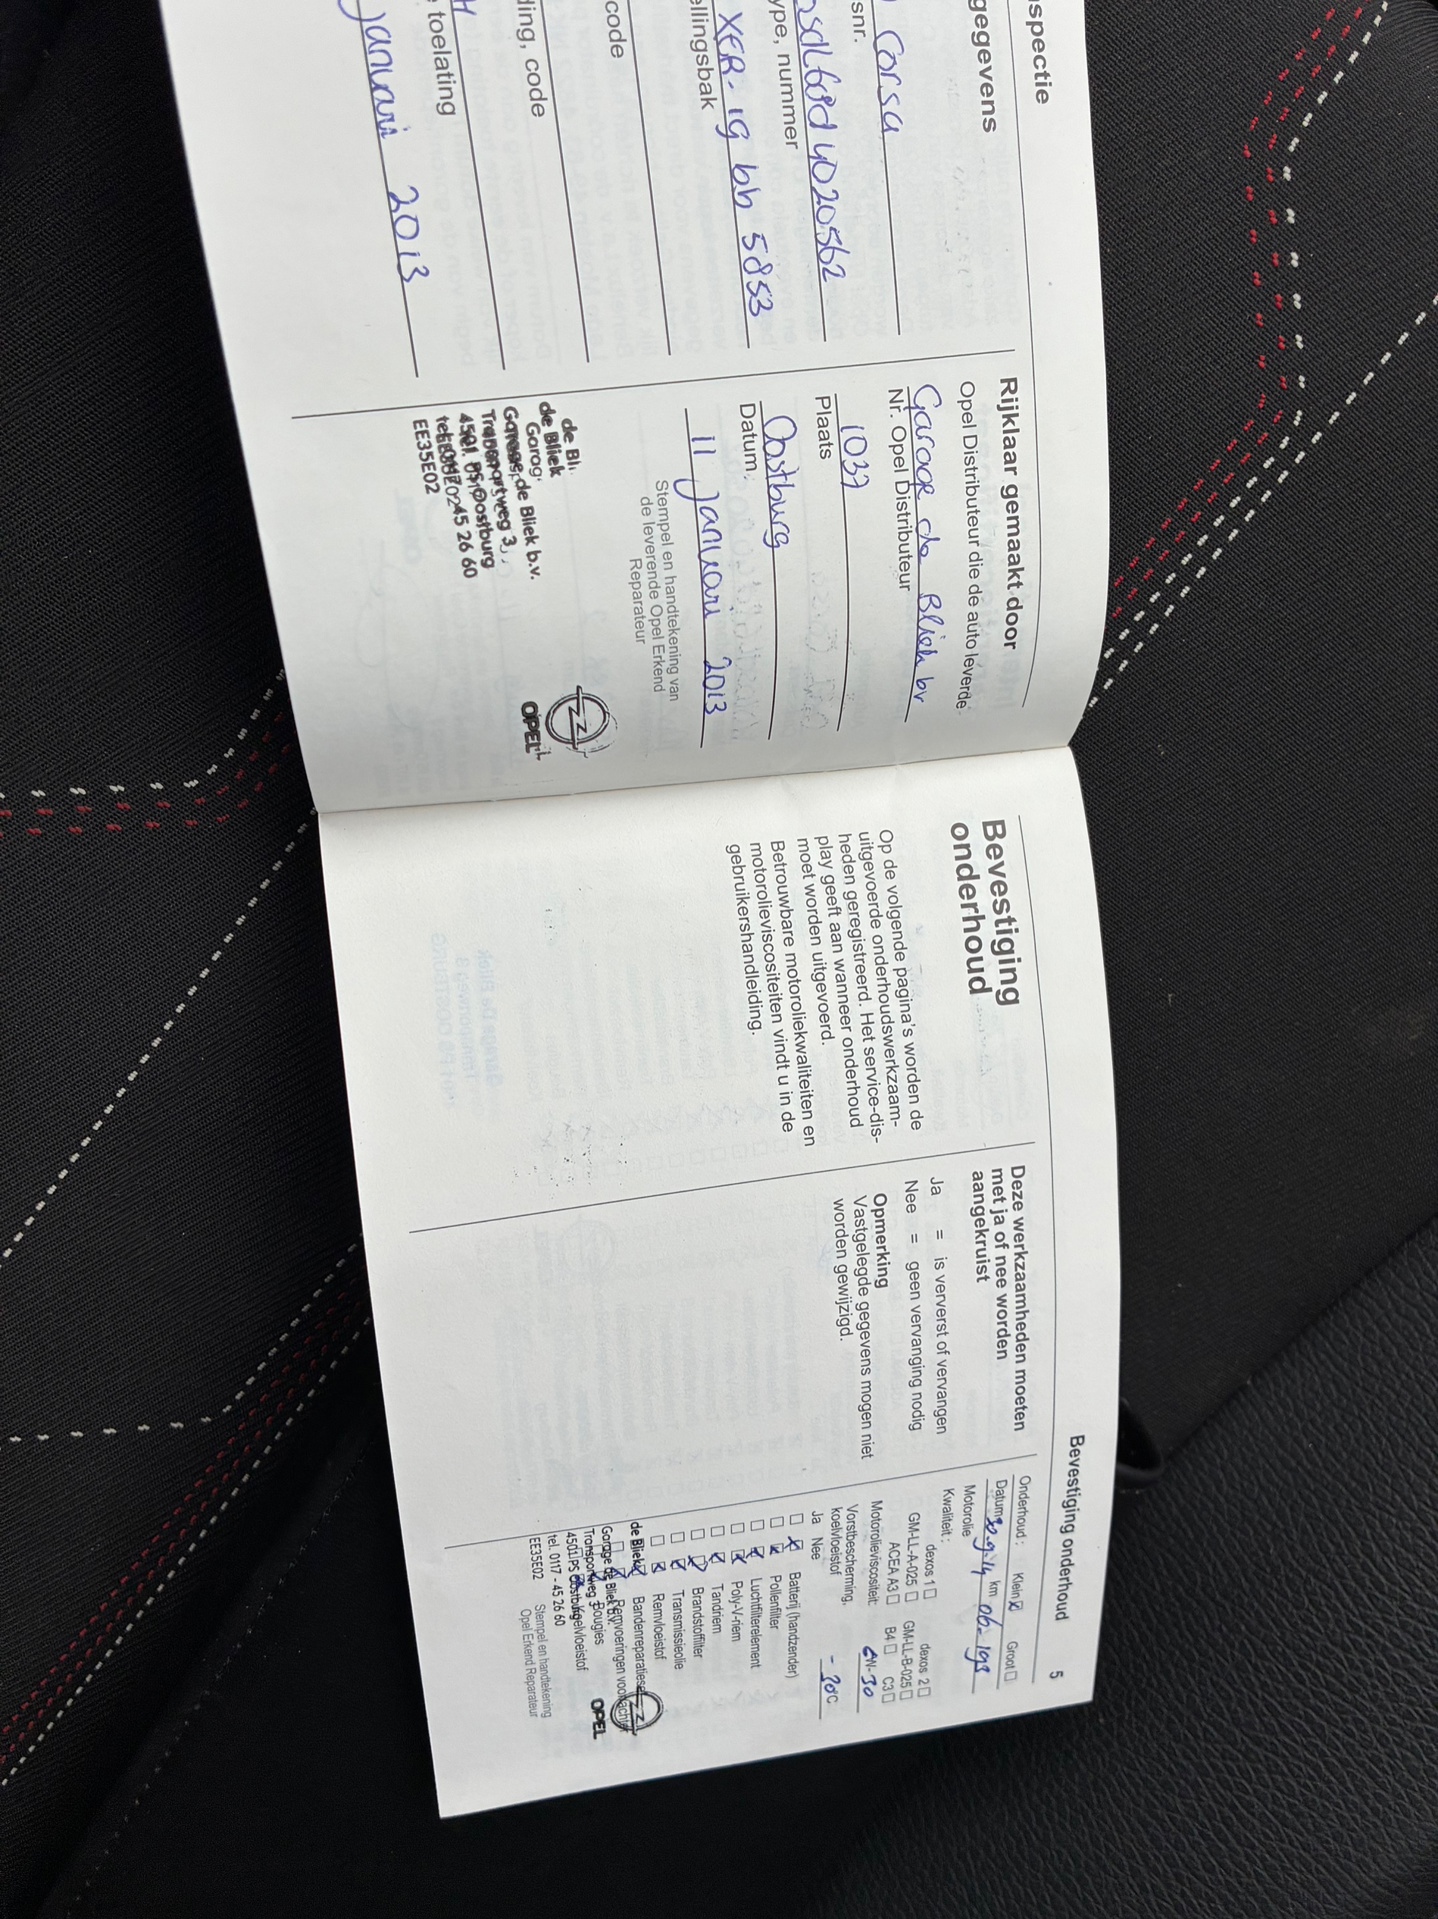 spectie
gegevens
Corsa
snr.
sdl68d4020562
ype, nummer
XER. 19 bh 5853
ellingsbak
code
ding, code
toelating
januari 2013
Rijklaar gemaakt door
Opel Distributeur die de auto leverde
Garage de Bliek bv
Nr. Opel Distributeur
1037
Plaats
Oostburg
Datum
11 januari 2013
Stempel en handtekening van
de leverende Opel Erkend
Reparateur
de Bliek
Garage de Bliek b.v.
Transportweg 3
4501 PS Oostburg
tel. 0117 - 45 26 60
EE35E02
OPEL
Bevestiging
onderhoud
Op de volgende pagina's worden de
uitgevoerde onderhoudswerkzaam-
heden geregistreerd. Het service-dis-
play geeft aan wanneer onderhoud
moet worden uitgevoerd.
Betrouwbare motoroliekwaliteiten en
motorolieviscositeiten vindt u in de
gebruikershandleiding.
Deze werkzaamheden moeten
met ja of nee worden
aangekruist
Ja = is ververst of vervangen
Nee = geen vervanging nodig
Opmerking
Vastgelegde gegevens mogen niet
worden gewijzigd.
Bevestiging onderhoud 5
Onderhoud: Klein Groot
Datum 30.9.14 km
Motorolie
Kwaliteit:
dexos 1 dexos 2
GM-LL-A-025 GM-LL-B-025
ACEA A3 B4 C3
Motorolieviscositeit: W-30
Vorstbescherming,
koelvloeistof -30°C
Ja Nee
Batterij (handzender)
Pollenfilter
Luchtfilterelement
Poly-V-riem
Tandriem
Brandstoffilter
Transmissieolie
Remvloeistof
Bandenreparatieset
Remvoeringen voor/achter
Bougies
Koelvloeistof
de Bliek
Garage de Bliek b.v.
Transportweg 3
4501 PS Oostburg
tel. 0117 - 45 26 60
EE35E02
OPEL
Stempel en handtekening
Opel Erkend Reparateur